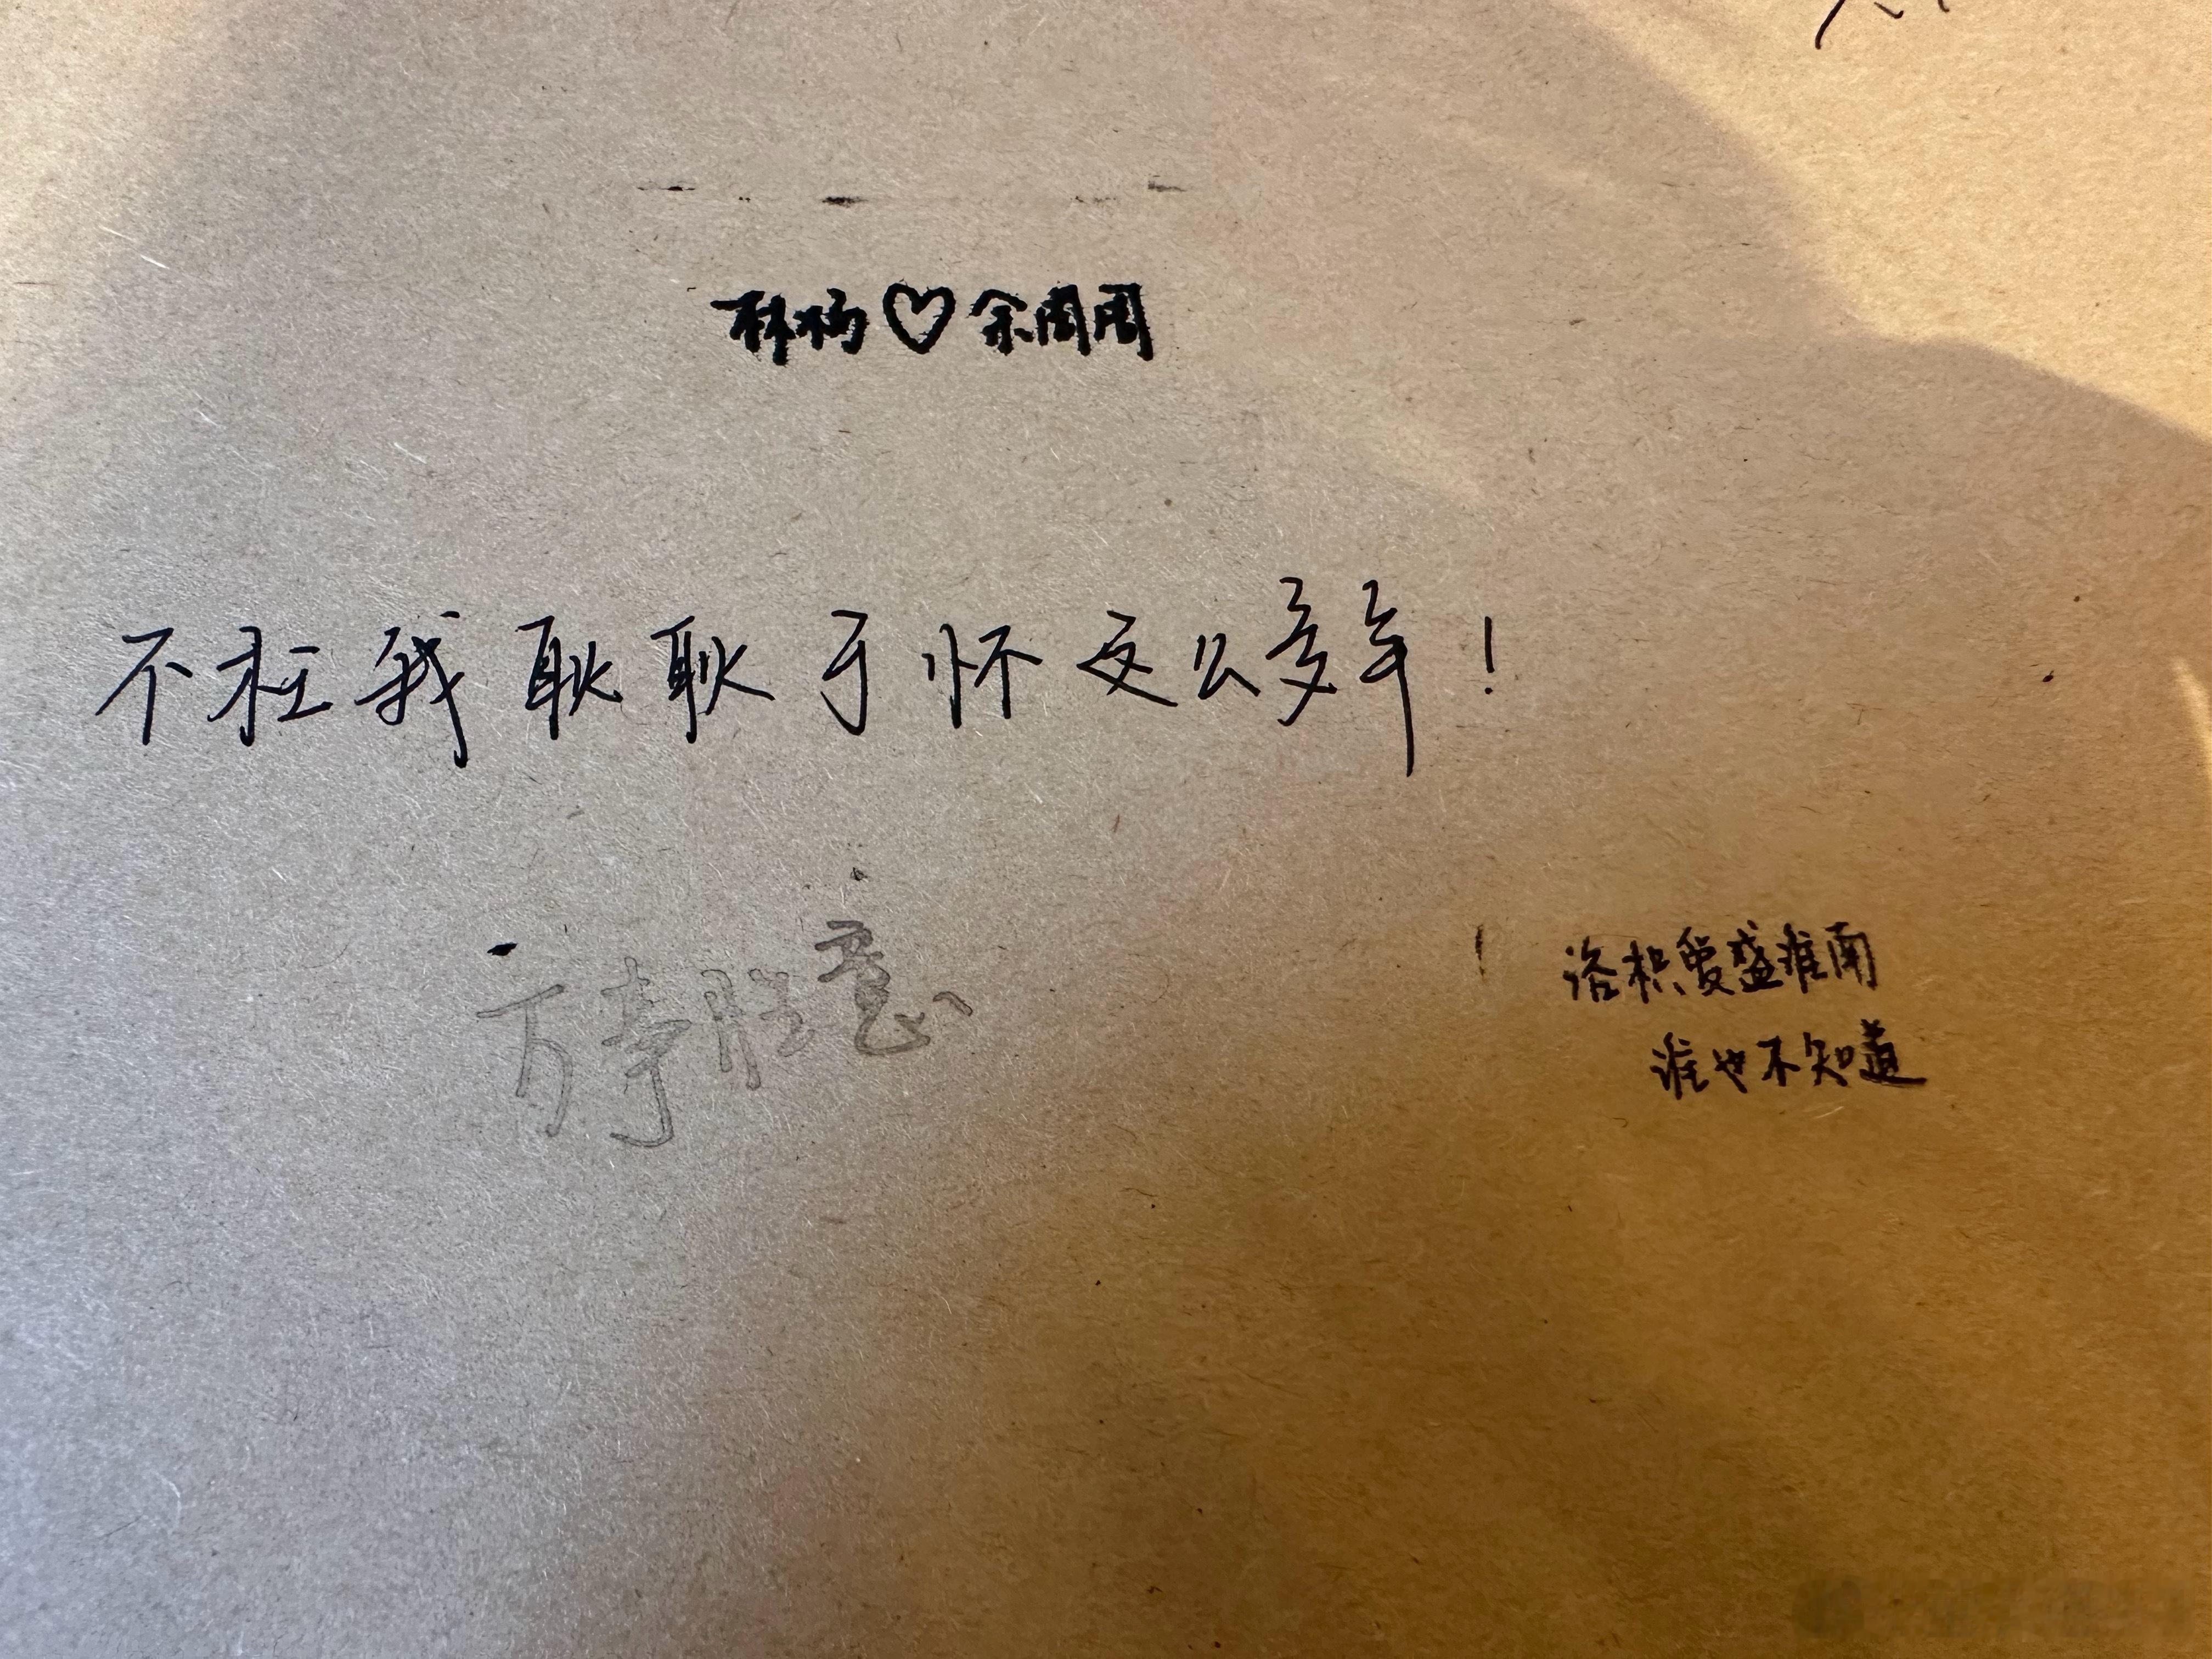 林杨♡余周周
不枉我耿耿于怀这么多年！
万事胜意
洛枳爱盛淮南
谁也不知道